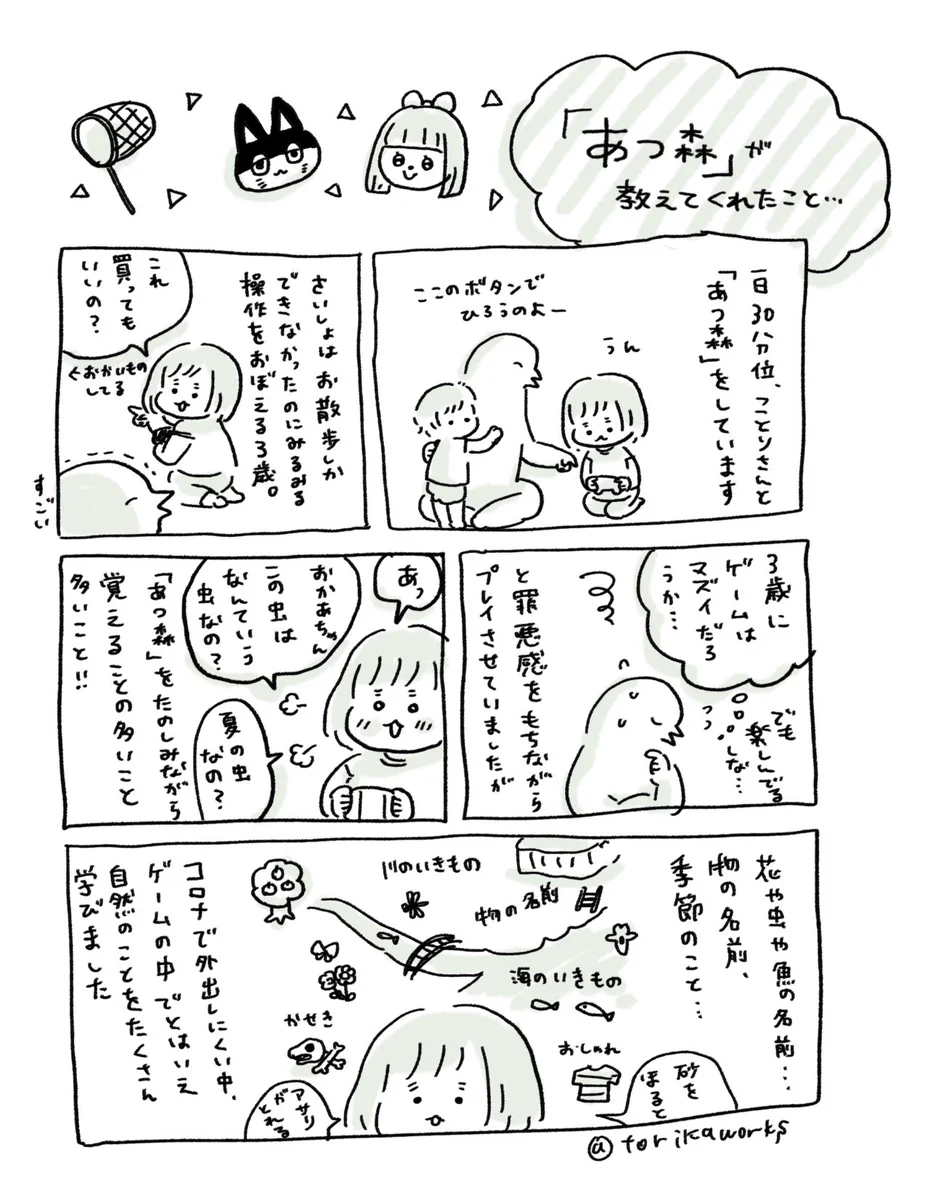 「あつ森」が
教えてくれたこと…
一日30分位、ことりさんと
「あつ森」をしています
ここのボタンで
ひろうのよー
うん
さいしょはお散歩しか
できなかったのにみるみる
操作をおぼえる3歳。
これ
買っても
いいの？
←おかいもの
してる
すごい
3歳に
ゲームは
マズイだろ
うか…
でも
楽しんでる
しな…
と罪悪感をもちながら
プレイさせていましたが
あっ
おかあちゃん
この虫は
なんていう
虫なの？
夏の虫
なの？
「あつ森」をたのしみながら
覚えることの多いこと
多いこと!!
花や虫や魚の名前…
物の名前、
季節のこと…
川のいきもの
物の名前
海のいきもの
かせき
おしゃれ
砂を
ほると
アサリ
がとれる
コロナで外出しにくい中、
ゲームの中でとはいえ
自然のことをたくさん
学びました
@torikaworks